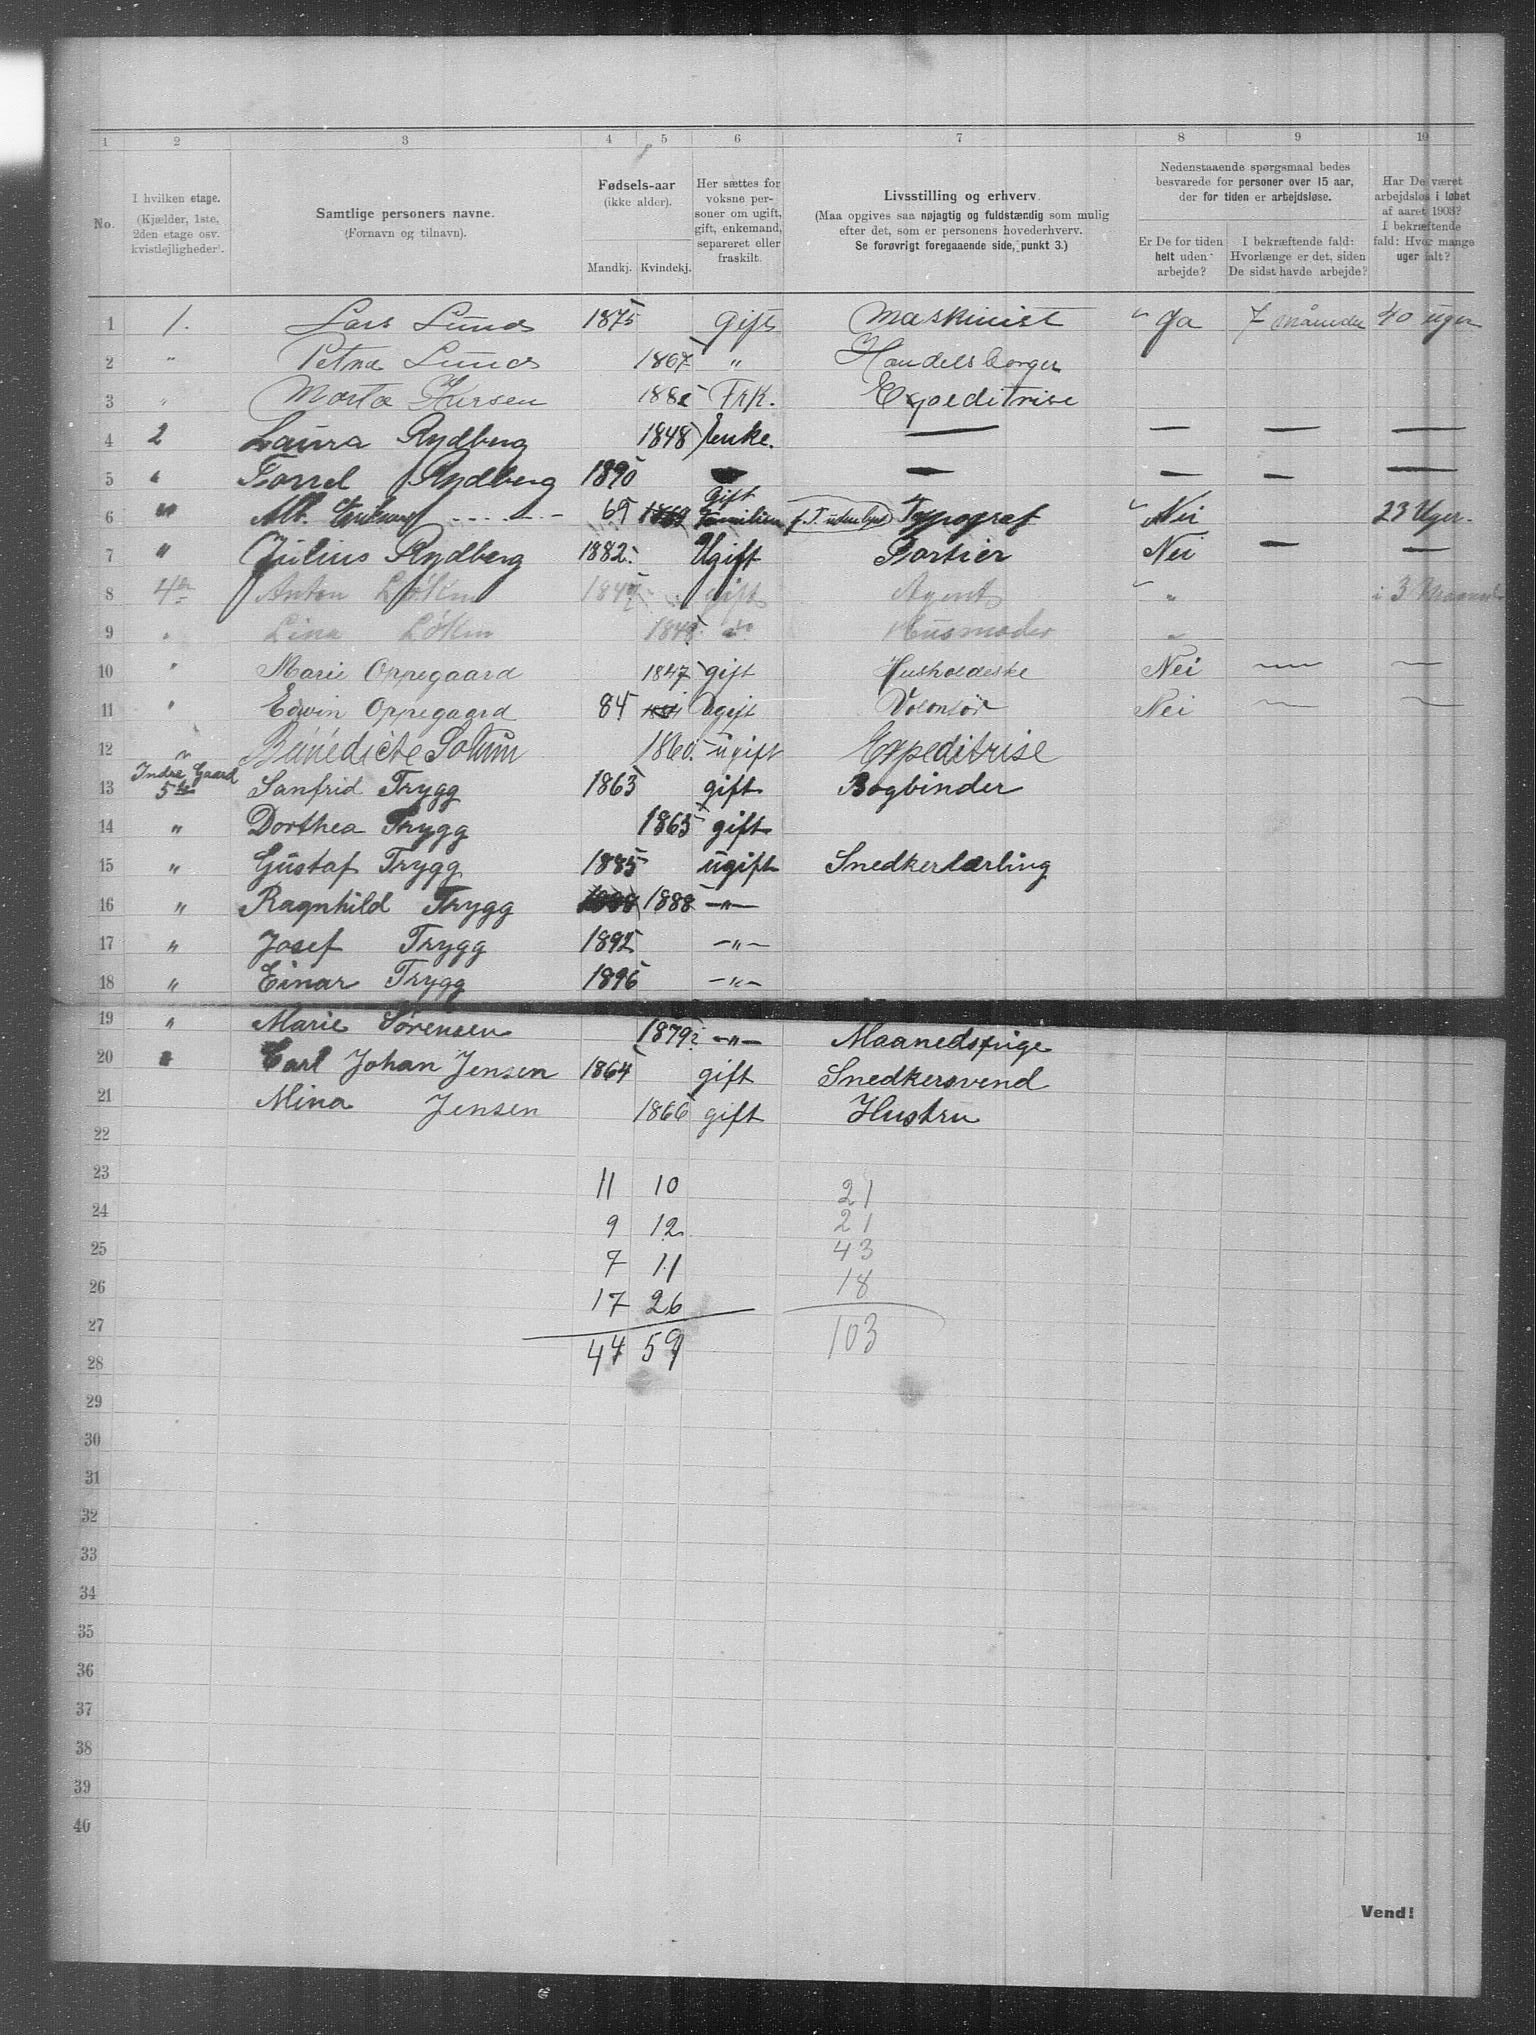 1 2 3 4 5 6 7 8 9 10
No.
I hvilken etage.
(Kjælder, 1ste,
2den etage osv.
kvistlejligheder).
Samtlige personers navne.
(Fornavn og tilnavn).
Fødsels-aar
(ikke alder).
Mandkj. Kvindekj.
Her sættes for
voksne per-
soner om ugift,
gift, enkemand,
separeret eller
fraskilt.
Livsstilling og erhverv.
(Maa opgives saa nøjagtig og fuldstændig som mulig
efter det, som er personens hovederhverv.
Se forøvrigt foregaaende side, punkt 3.)
Nedenstaaende spørgsmaal bedes
besvarede for personer over 15 aar,
der for tiden er arbejdsløse.
Er De for tiden
helt uden
arbejde?
I bekræftende fald:
Hvorlænge er det, siden
De sidst havde arbejde?
Har De været
arbejdsløs i løbet
af aaret 1903?
I bekræftende
fald: Hvor mange
uger ialt?
1 1. Lars Lund 1875 gift Maskinist " Ja 7 måneder 40 uger
2 " Petna Lund 1867 " Handelsborger
3 " Marta 188 Frk. Expeditrise
4 2 Laura Rydberg 1848 Enke. — — — —
5 " Rydberg 1890 — — — —
6 " Alb. 69 1869 Gift Familien Typograf " Nei 23 Uger.
7 " Julius Rydberg 1882. Ugift Portier Nei — —
8 4de Anton Løken 184 gift Agent " " i 3
9 " Lina Løken 184 do Husmoder "
10 " Marie Oppegaard 1847 gift Husholderske Nei — —
11 " Edvin Oppegaard 84 Ugift Volontør Nei — —
12 " Benedicte Solum 1860. ugift Expeditrise
Indre Gaard
13 5te Sanfrid Trygg 1863 gift Bogbinder
14 " Dorthea Trygg 1865 gift
15 " Gustaf Trygg 1885 ugift Snedkerlærling
16 " Ragnhild Trygg 1888 1888 —"—
17 " Josef Trygg 1892 —"—
18 " Einar Trygg 1896 —"—
19 " Marie Sørensen 1879 —"— Maanedspige
20 " Carl Johan Jensen 1864 gift Snedkersvend
21 Mina Jensen 1866 gift Hustru
22
23 11 10 21
24 9 12 21
25 7 11 43
26 17 26 18
27 44 59 103
28
29
30
31
32
33
34
35
36
37
38
39
40
Vend!